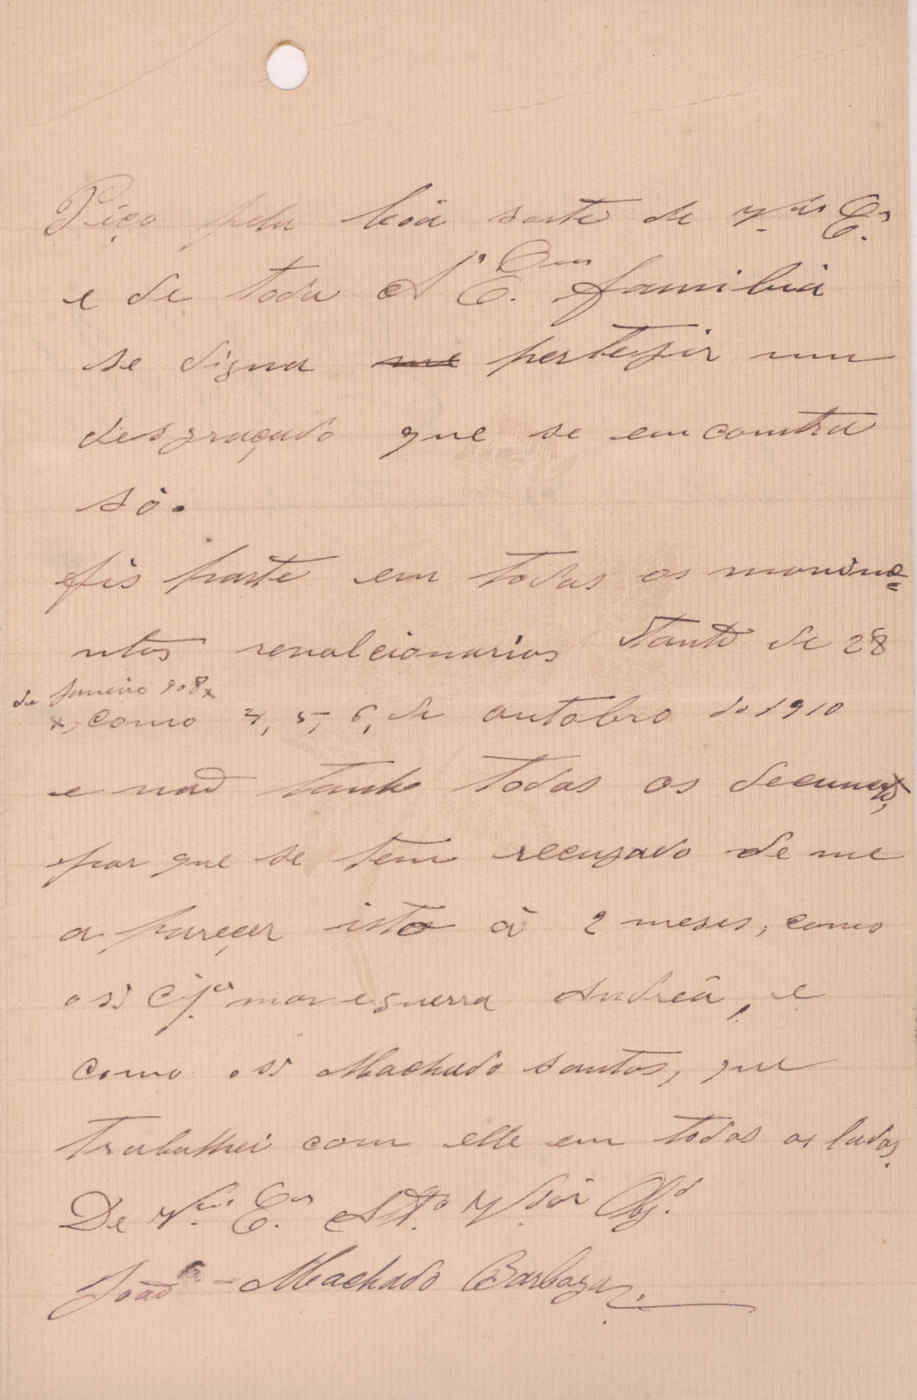 Pêço pela bôa sorte de V.as Ex.as
e de toda A S.a Ex.ma familia
se digna me pertegir um
desgraçado que se emcomtra
só.
fis parte em todas os movime=
ntos revolcionarios Tanto de 28
de Janeiro 908 x
x, como 4, 5, 6, de outobro de 1910
e naõ tanho todas os decumentos,
por que se tem recuzado de me
a pareçer isto á 2 meses, como
o sr mor e guerra Andrêa, e
como o sr Machado santos, que
trabalhei com elle em todos os lados.
De V. Ex.a Att.o V.dor Obg.o
João Machado Barboza